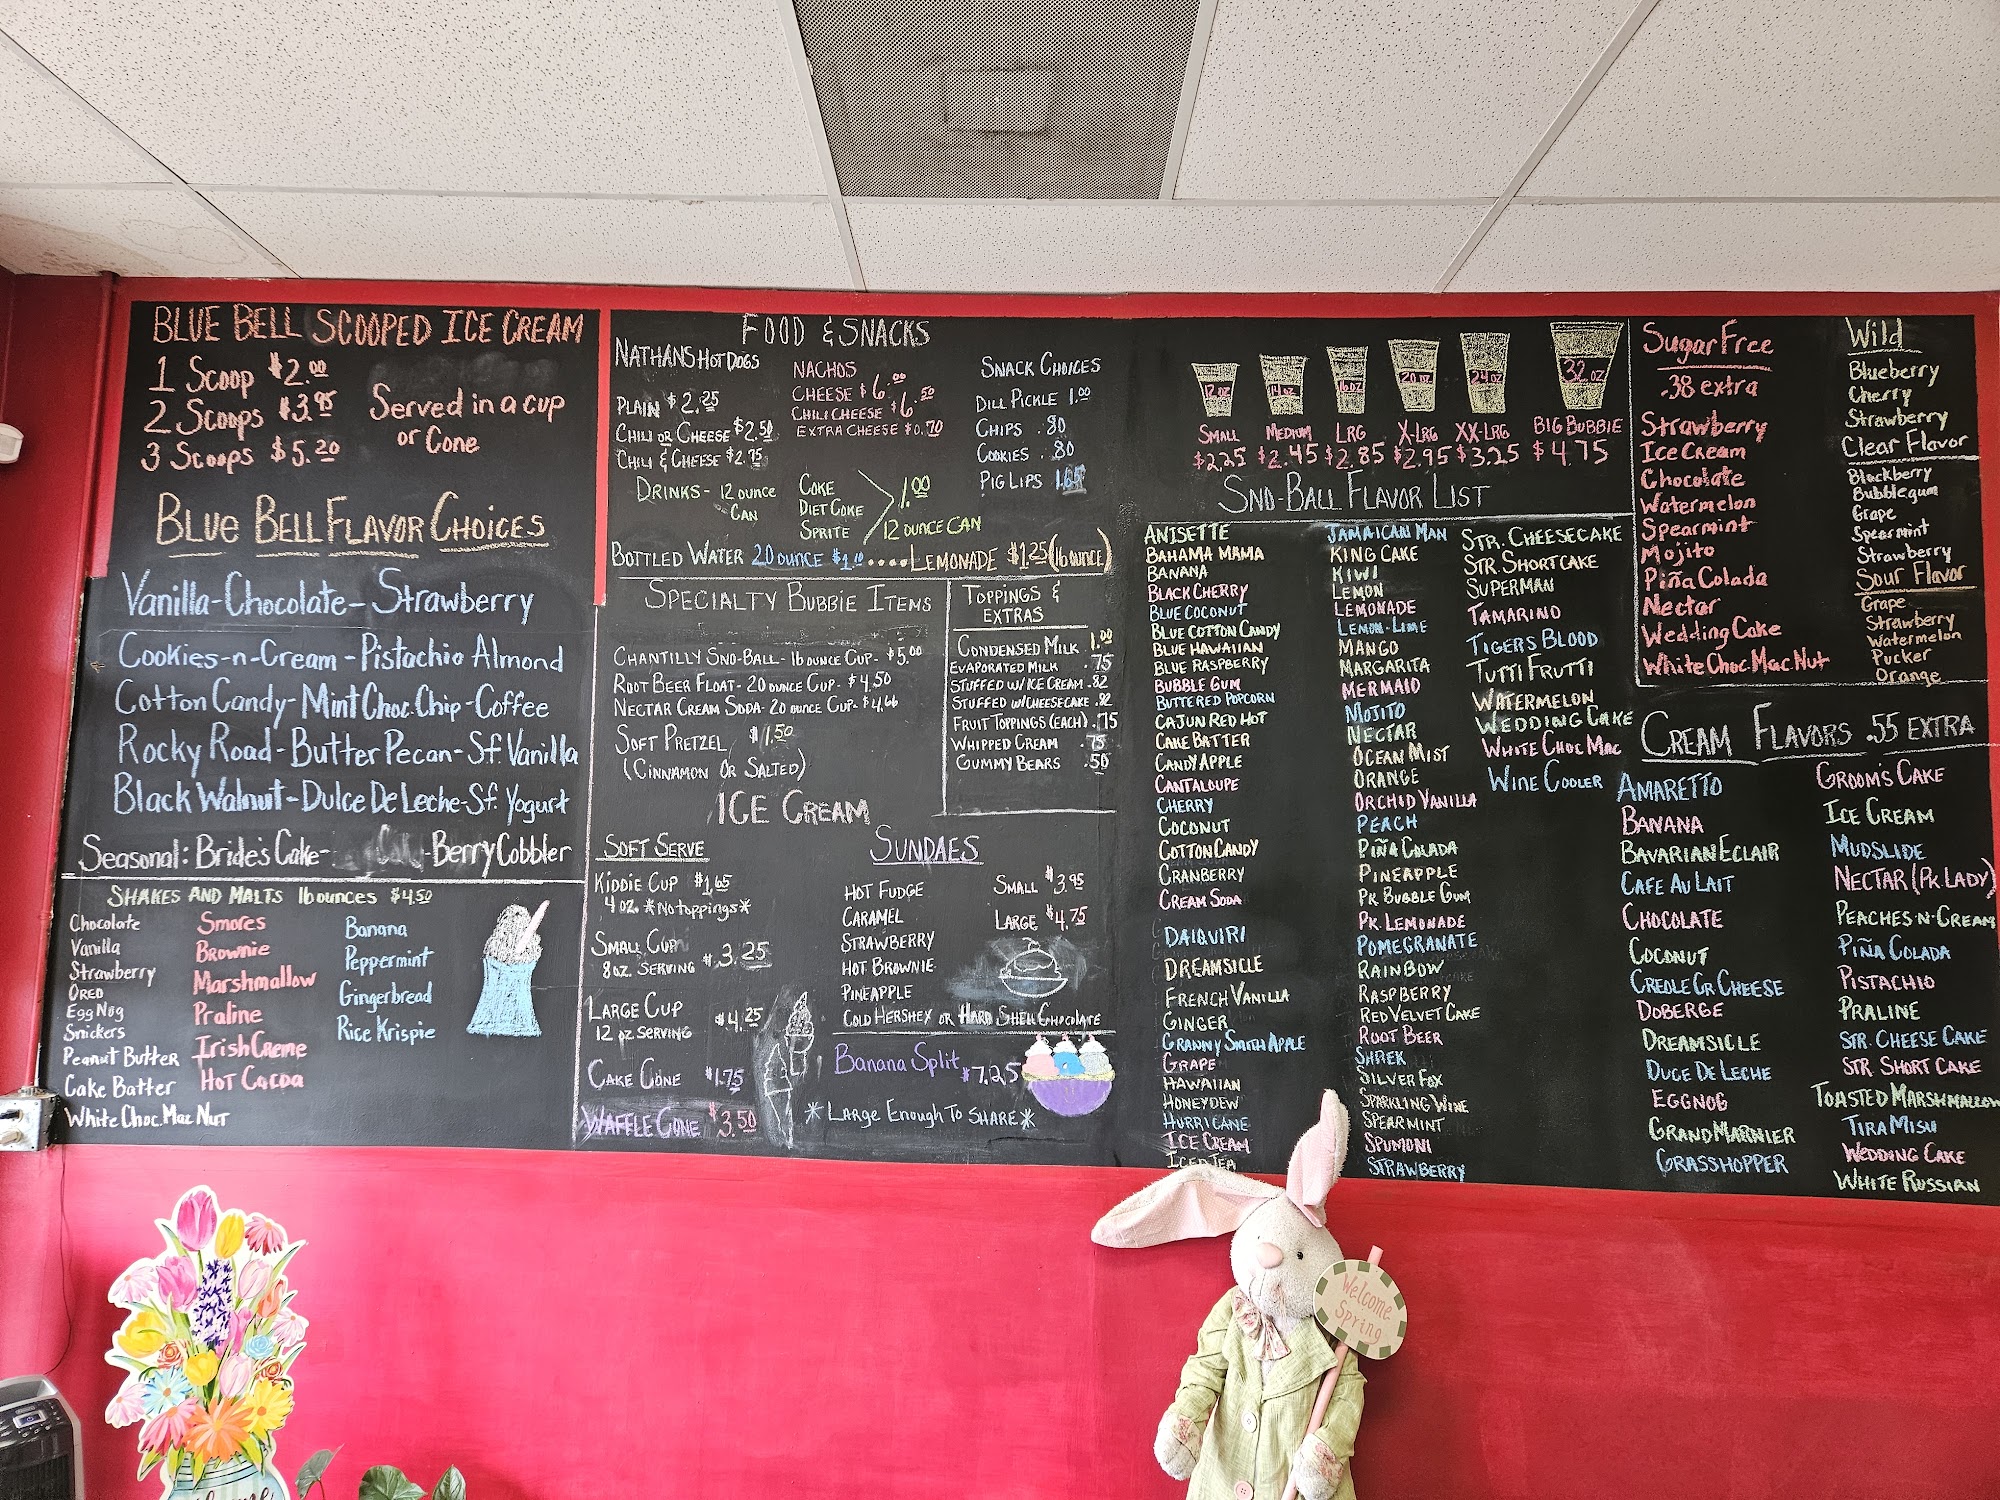 BLUE BELL SCOOPED ICE CREAM
1 Scoop $2.00
2 Scoops $3.95
3 Scoops $5.20
Served in a cup
or Cone
BLUE BELL FLAVOR CHOICES
Vanilla-Chocolate-Strawberry
Cookies-n-Cream-Pistachio Almond
Cotton Candy-Mint Choc. Chip-Coffee
Rocky Road-Butter Pecan-Sf. Vanilla
Black Walnut-Dulce De Leche-Sf. Yogurt
Seasonal: Bride's Cake- -Berry Cobbler
SHAKES AND MALTS 16 ounces $4.50
Chocolate
Vanilla
Strawberry
OREO
Egg Nog
Snickers
Peanut Butter
Cake Batter
White Choc. Mac Nut
Smores
Brownie
Marshmallow
Praline
Irish Creme
HOT Cocoa
Banana
Peppermint
Gingerbread
Rice Krispie
FOOD & SNACKS
NATHANS HOT DOGS
PLAIN $2.25
CHILI OR CHEESE $2.50
CHILI & CHEESE $2.75
NACHOS
CHEESE $6.00
CHILI CHEESE $6.50
EXTRA CHEESE $0.70
SNACK CHOICES
DILL PICKLE 1.00
CHIPS .80
COOKIES .80
PIG LIPS 1.65
DRINKS- 12 ounce
CAN
COKE
DIET COKE
SPRITE
1.00
12 OUNCE CAN
BOTTLED WATER 20 OUNCE $1.10 ....LEMONADE $1.25 (16 OUNCE)
SPECIALTY BUBBIE ITEMS
CHANTILLY SNO-BALL- 16 OUNCE CUP- $5.00
ROOT BEER FLOAT- 20 OUNCE CUP- $4.50
NECTAR CREAM SODA- 20 OUNCE CUP- $4.66
SOFT PRETZEL $1.50
(CINNAMON OR SALTED)
TOPPINGS &
EXTRAS
CONDENSED MILK 1.00
EVAPORATED MILK .75
STUFFED W/ICE CREAM .82
STUFFED W/CHEESECAKE .92
FRUIT TOPPINGS (EACH) .75
WHIPPED CREAM .75
GUMMY BEARS .50
ICE CREAM
SOFT SERVE
KIDDIE CUP $1.65
4 OZ. *No toppings*
SMALL CUP
8 OZ. SERVING $3.25
LARGE CUP
12 OZ SERVING $4.25
CAKE CONE $1.75
WAFFLE CONE $3.50
SUNDAES
HOT FUDGE
CARAMEL
STRAWBERRY
HOT BROWNIE
PINEAPPLE
COLD HERSHEY OR HARD SHELL CHOCOLATE
SMALL $3.95
LARGE $4.75
Banana Split $7.25
*LARGE ENOUGH TO SHARE*
12 OZ
14 OZ
16 OZ
20 OZ
24 OZ
32 OZ
SMALL MEDIUM LRG X-LRG XX-LRG BIG BUBBIE
$2.25 $2.45 $2.85 $2.95 $3.25 $4.75
SNO-BALL FLAVOR LIST
ANISETTE
BAHAMA MAMA
BANANA
BLACK CHERRY
BLUE COCONUT
BLUE COTTON CANDY
BLUE HAWAIIAN
BLUE RASPBERRY
BUBBLE GUM
BUTTERED POPCORN
CAJUN RED HOT
CAKE BATTER
CANDY APPLE
CANTALOUPE
CHERRY
COCONUT
COTTON CANDY
CRANBERRY
CREAM SODA
DAIQUIRI
DREAMSICLE
FRENCH VANILLA
GINGER
GRANNY SMITH APPLE
GRAPE
HAWAIIAN
HONEYDEW
HURRICANE
ICE CREAM
ICED TEA
JAMAICAN MAN
KING CAKE
KIWI
LEMON
LEMONADE
LEMON-LIME
MANGO
MARGARITA
MERMAID
MOJITO
NECTAR
OCEAN MIST
ORANGE
ORCHID VANILLA
PEACH
PIÑA COLADA
PINEAPPLE
PK BUBBLE GUM
PK. LEMONADE
POMEGRANATE
RAINBOW
RASPBERRY
RED VELVET CAKE
ROOT BEER
SHREK
SILVER FOX
SPARKLING WINE
SPEARMINT
SPUMONI
STRAWBERRY
STR. CHEESECAKE
STR. SHORTCAKE
SUPERMAN
TAMARIND
TIGERS BLOOD
TUTTI FRUTTI
WATERMELON
WEDDING CAKE
WHITE CHOC MAC
WINE COOLER
Sugar Free
.38 extra
Strawberry
Ice Cream
Chocolate
Watermelon
Spearmint
Mojito
Piña Colada
Nectar
Wedding Cake
White Choc. Mac Nut
Wild
Blueberry
Cherry
Strawberry
Clear Flavor
Blackberry
Bubblegum
Grape
Spearmint
Strawberry
Sour Flavor
Grape
Strawberry
Watermelon
Pucker
Orange
CREAM FLAVORS .55 EXTRA
AMARETTO
BANANA
BAVARIAN ECLAIR
CAFE AU LAIT
CHOCOLATE
COCONUT
CREOLE CR. CHEESE
DOBERGE
DREAMSICLE
DUCE DE LECHE
EGGNOG
GRAND MARNIER
GRASSHOPPER
GROOM'S CAKE
ICE CREAM
MUDSLIDE
NECTAR (PK. LADY)
PEACHES-N-CREAM
PIÑA COLADA
PISTACHIO
PRALINE
STR. CHEESE CAKE
STR. SHORT CAKE
TOASTED MARSHMALLOW
TIRA MISU
WEDDING CAKE
WHITE RUSSIAN
Welcome
Spring